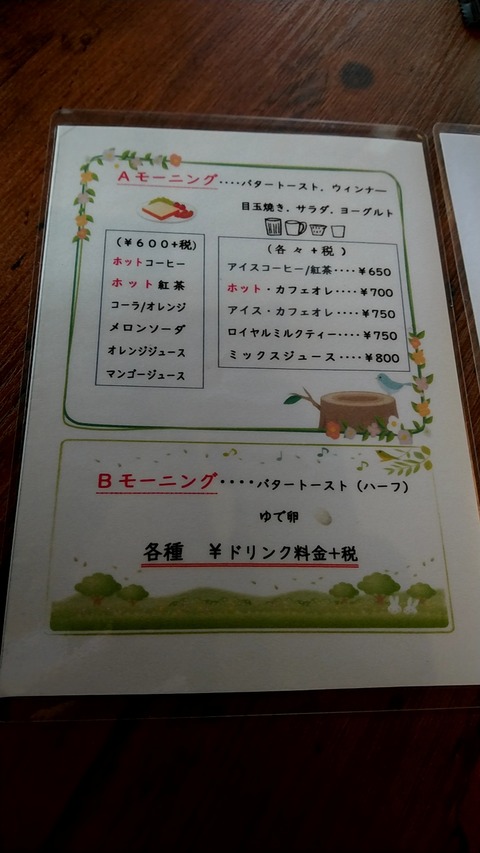 Aモーニング････バタートースト．ウィンナー
目玉焼き．サラダ．ヨーグルト
(￥600+税)
ホットコーヒー
ホット紅茶
コーラ/オレンジ
メロンソーダ
オレンジジュース
マンゴージュース
(各々+税)
アイスコーヒー/紅茶････￥650
ホット・カフェオレ････￥700
アイス・カフェオレ････￥750
ロイヤルミルクティー････￥750
ミックスジュース････￥800
Bモーニング････バタートースト（ハーフ）
ゆで卵
各種　￥ドリンク料金+税